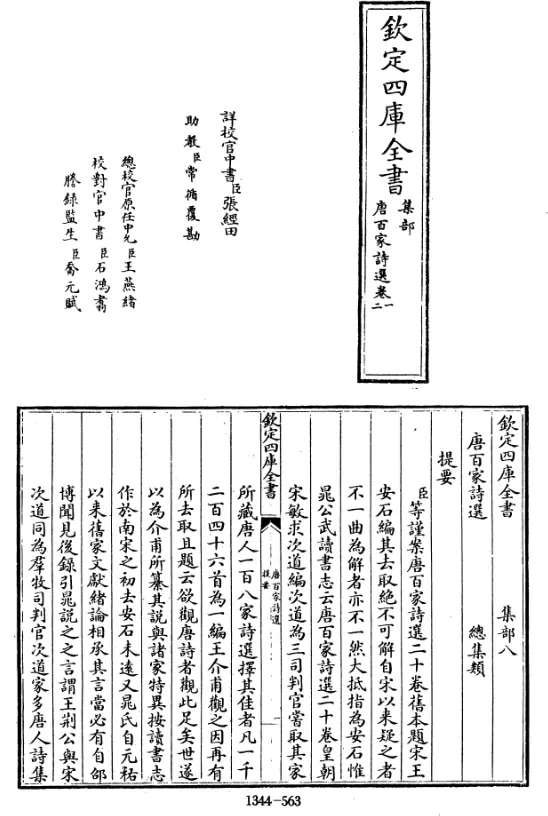 欽定四庫全書
集部
唐百家詩選卷一二
詳校官中書臣張經田
助教臣常循覆勘
總校官原任中允臣王燕緒
校對官中書臣石鴻翥
謄錄監生臣喬元賦
欽定四庫全書 集部八
唐百家詩選 總集類
提要
臣等謹案唐百家詩選二十卷舊本題宋王
安石編其去取絶不可解自宋以來疑之者
不一曲為解者亦不一然大抵指為安石惟
晁公武讀書志云唐百家詩選二十卷皇朝
宋敏求次道編次道為三司判官嘗取其家
欽定四庫全書
唐百家詩選
提要
一
所藏唐人一百八家詩選擇其佳者凡一千
二百四十六首為一編王介甫觀之因再有
所去取且題云欲觀唐詩者觀此足矣世遂
以為介甫所纂其說與諸家特異按讀書志
作於南宋之初去安石未逺又晁氏自元祐
以来舊家文獻緒論相承其言當必有自邵
博聞見後録引晁説之之言謂王荆公與宋
次道同為羣牧司判官次道家多唐人詩集
1344-563